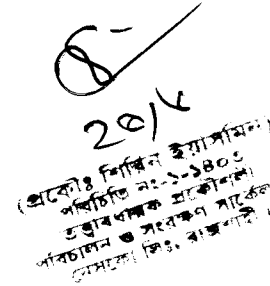 ২০/৮
(প্রকৌঃ শিরিন ইয়াসমিন)
পরিচিতি নং-১-১৪০১
তত্ত্বাবধায়ক প্রকৌশলী
পরিচালন ও সংরক্ষণ সার্কেল
নেসকো লিঃ, রাজশাহী।